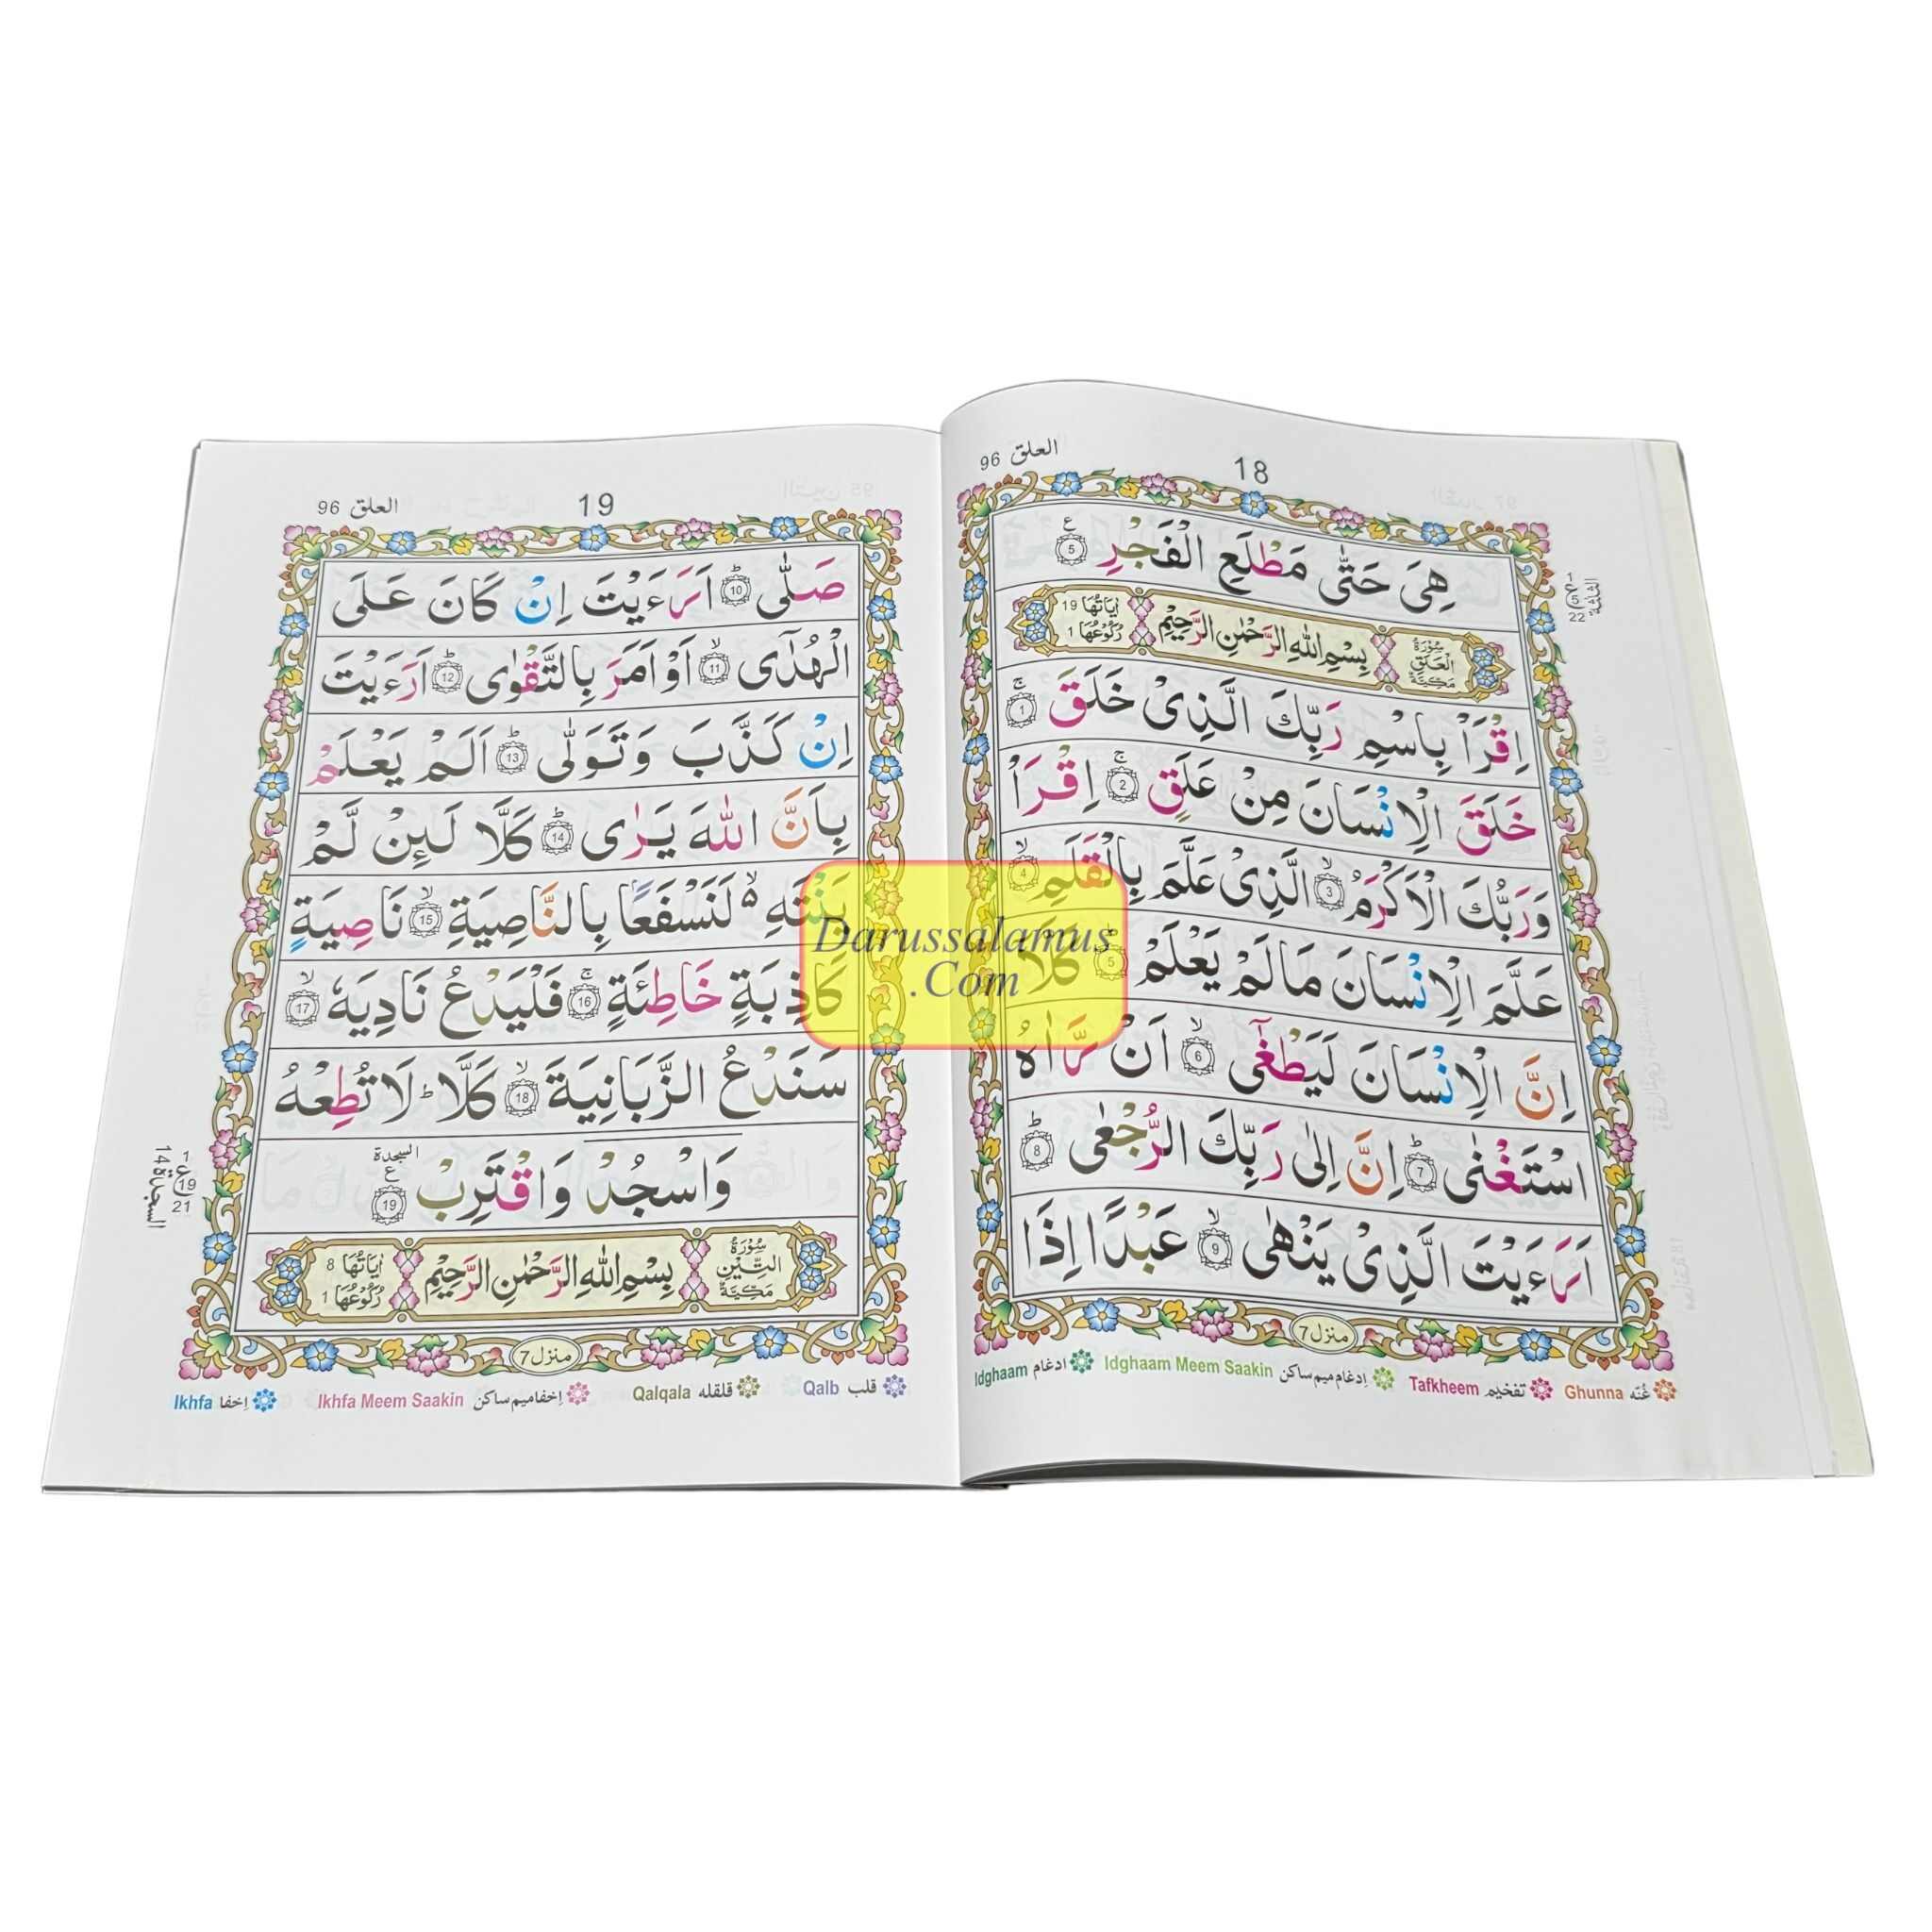 18
العلق 96
هِيَ حَتّٰى مَطْلَعِ الْفَجْرِ ۝5 ع
سُوْرَةُ الْعَلَقِ مَكِّيَّةٌ
بِسْمِ اللّٰهِ الرَّحْمٰنِ الرَّحِيْمِ
اٰيَاتُهَا 19
رُكُوْعُهَا 1
اِقْرَاْ بِاسْمِ رَبِّكَ الَّذِىْ خَلَقَ ۝1 ج
خَلَقَ الْاِنْسَانَ مِنْ عَلَقٍ ۝2 ج اِقْرَاْ
وَرَبُّكَ الْاَكْرَمُ ۝3 لا الَّذِىْ عَلَّمَ بِالْقَلَمِ ۝4 لا
عَلَّمَ الْاِنْسَانَ مَالَمْ يَعْلَمْ ۝5 ط كَلَّا
اِنَّ الْاِنْسَانَ لَيَطْغٰٓى ۝6 لا اَنْ رَّاٰهُ
اسْتَغْنٰى ۝7 ط اِنَّ اِلٰى رَبِّكَ الرُّجْعٰى ۝8 ط
اَرَءَيْتَ الَّذِىْ يَنْهٰى ۝9 لا عَبْدًا اِذَا
منزل 7
غُنّه Ghunna تفخيم Tafkheem اِدغام ميم ساكن Idghaam Meem Saakin ادغام Idghaam
19
العلق 96
صَلّٰى ۝10 ط اَرَءَيْتَ اِنْ كَانَ عَلَى
الْهُدٰٓى ۝11 لا اَوْ اَمَرَ بِالتَّقْوٰى ۝12 ط اَرَءَيْتَ
اِنْ كَذَّبَ وَتَوَلّٰى ۝13 ط اَلَمْ يَعْلَمْ
بِاَنَّ اللّٰهَ يَرٰى ۝14 ط كَلَّا لَىِٕنْ لَّمْ
يَنْتَهِ ۙ۬ لَنَسْفَعًا بِالنَّاصِيَةِ ۝15 لا نَاصِيَةٍ
كَاذِبَةٍ خَاطِئَةٍ ۝16 ج فَلْيَدْعُ نَادِيَهٗ ۝17 لا
سَنَدْعُ الزَّبَانِيَةَ ۝18 لا كَلَّا ط لَا تُطِعْهُ
وَاسْجُدْ وَاقْتَرِبْ ۝19 السجدة ع
السجدة 14
1 ع 19 21
سُوْرَةُ التِّيْنِ مَكِّيَّةٌ
بِسْمِ اللّٰهِ الرَّحْمٰنِ الرَّحِيْمِ
اٰيَاتُهَا 8
رُكُوْعُهَا 1
منزل 7
قلب Qalb قلقله Qalqala اِخفا ميم ساكن Ikhfa Meem Saakin اِخفا Ikhfa
Darussalamus
.Com